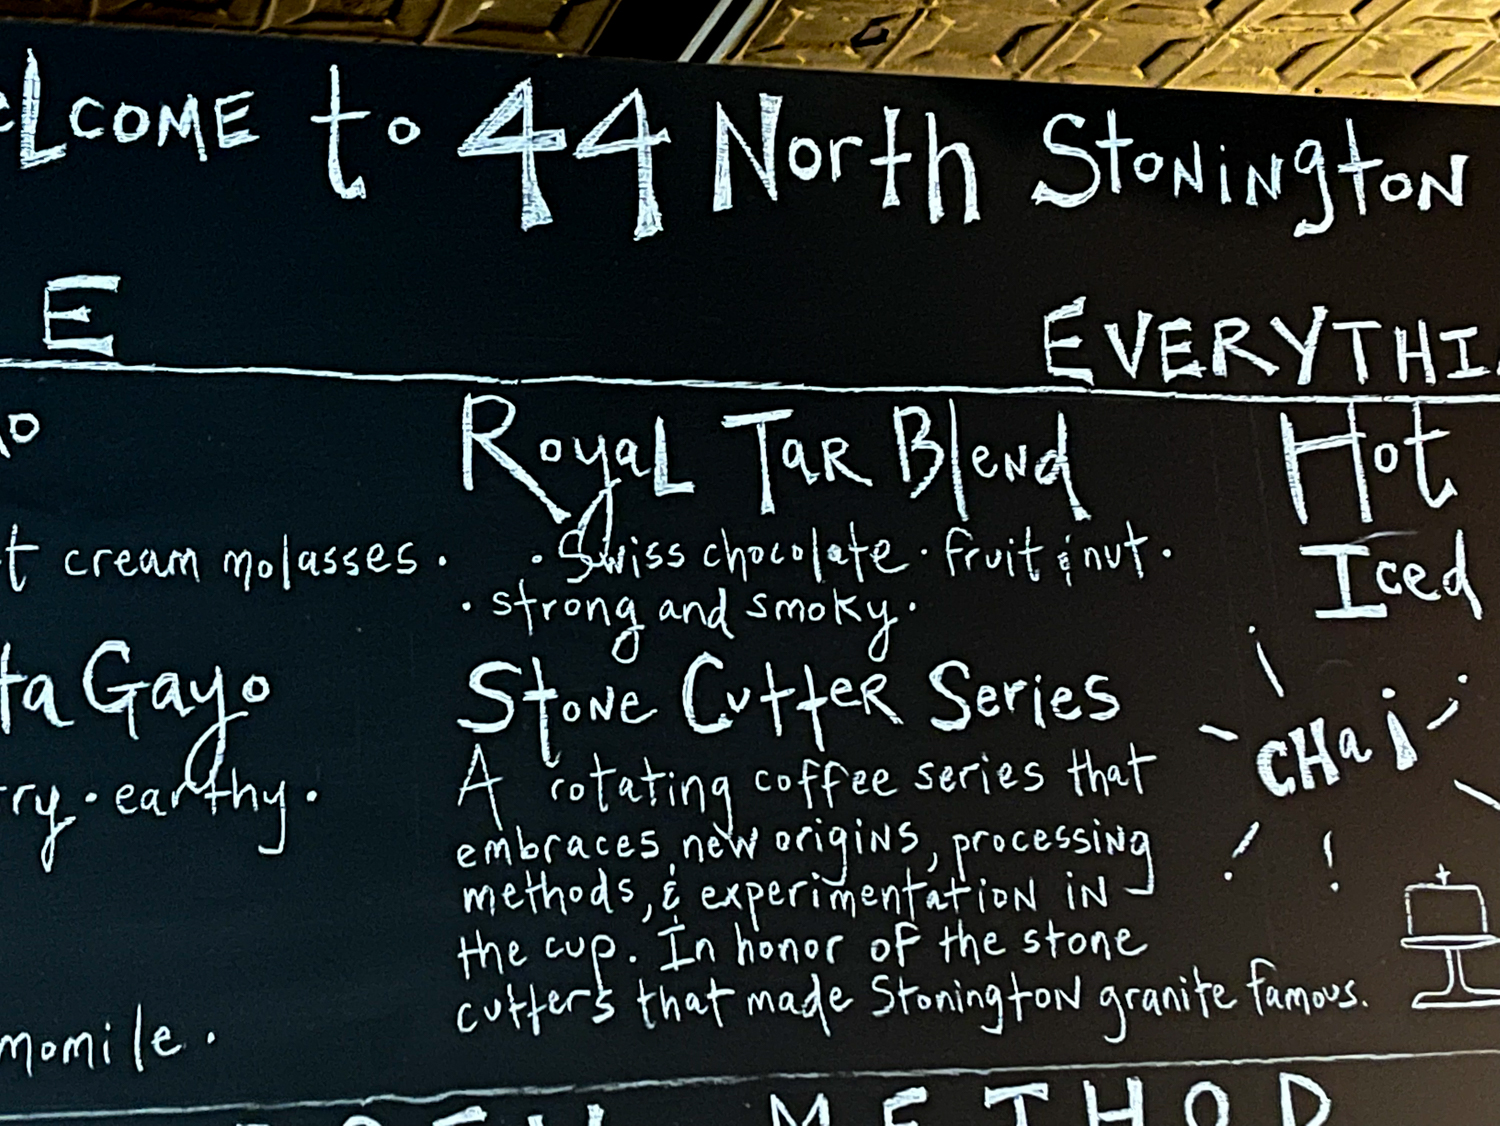 eLCOME to 44 North Stonington
E
EVERYTHI
Royal Tar Blend
Hot
t cream molasses ·
· Swiss chocolate · fruit & nut ·
Iced
· strong and smoky ·
ta Gayo
Stone Cutter Series
CHai
ry · earthy ·
A rotating coffee series that
embraces new origins, processing
methods, & experimentation in
the cup. In honor of the stone
cutters that made Stonington granite famous.
momile ·
METHOD